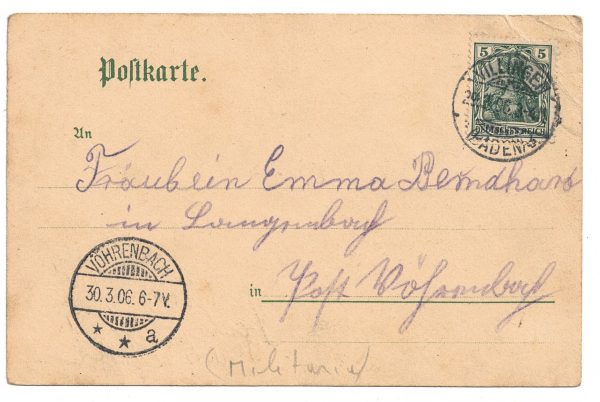 Postkarte.
5 5
VILLINGEN
(BADEN)
REICH
An
Fräulein Emma Bernhard
in Langenbach
in Post Vöhrenbach
VÖHRENBACH
30.3.06.6-7V.
* * a
(Militaria)